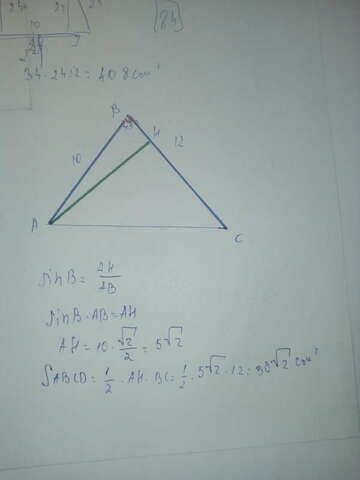 24
10
24
34 · 24 : 2 = 408 cm²
B
45
H
10
12
A
C
sin B = AH
AB
sin B · AB = AH
AH = 10 · √2/2 = 5√2
SABCD = 1/2 · AH · BC = 1/2 · 5√2 · 12 = 30√2 cm²